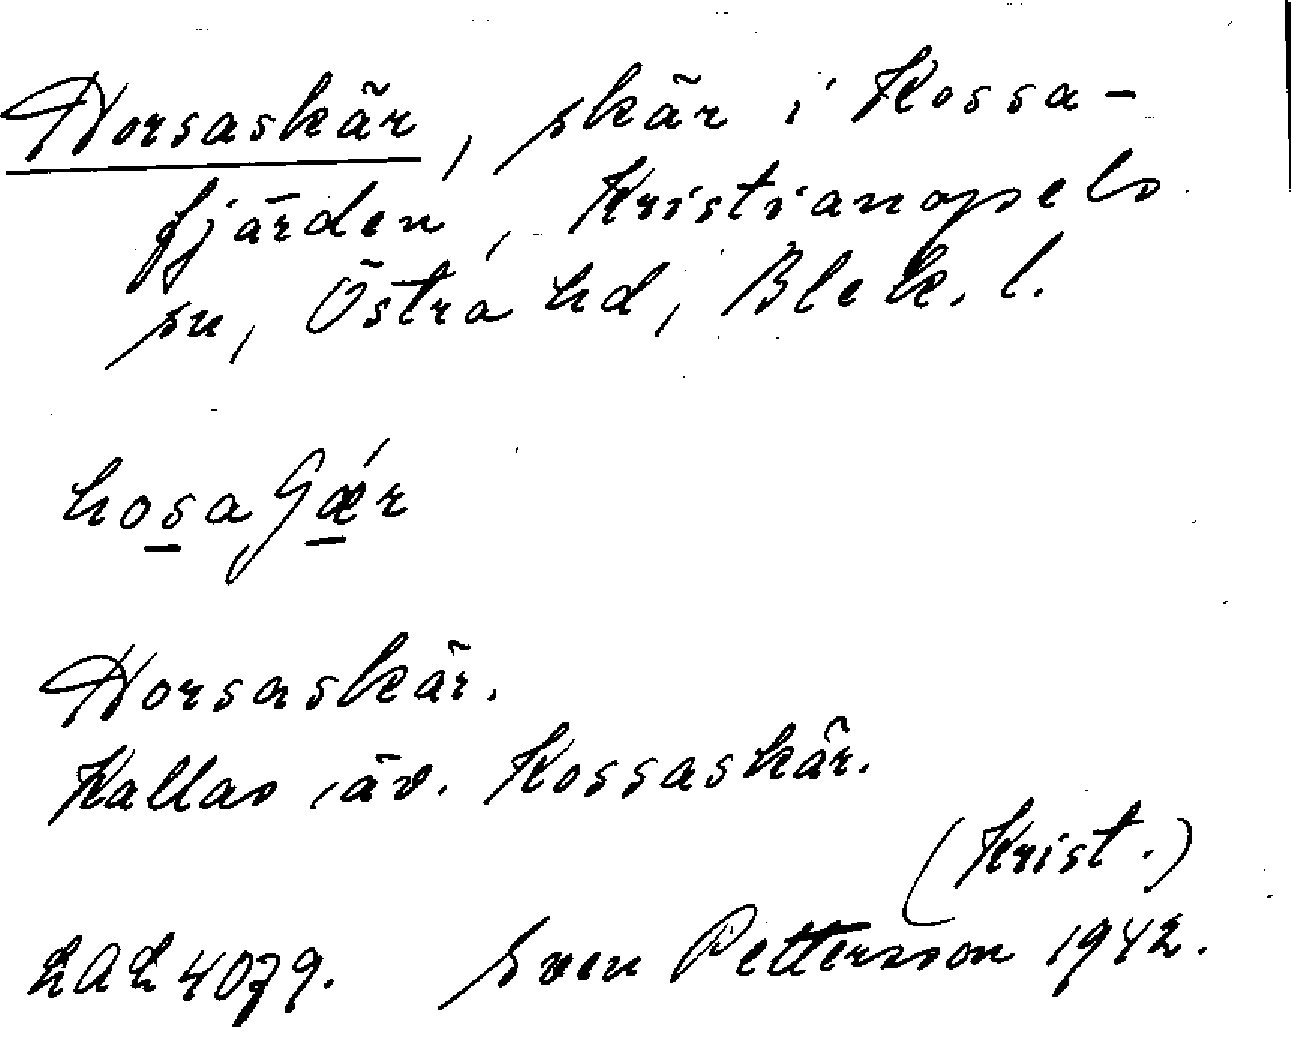 Horsaskär, skär i Kossa-
fjärden, Kristianopels
sn, Östra hd, Blek. l.
Horsaskär.
Kallas äv. Kossaskär.
(Krist.)
LAL 4079. Sven Pettersson 1942.